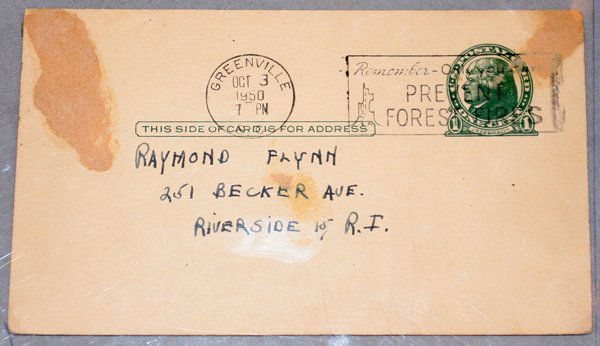 GREENVILLE
OCT 3
1950
7 PM
Remember-Only you
PREVENT
FOREST FIRES
U.S. POSTAL CARD
1 JEFFERSON 1
THIS SIDE OF CARD IS FOR ADDRESS
RAYMOND FLYNN
251 BECKER AVE.
RIVERSIDE 15 R.I.